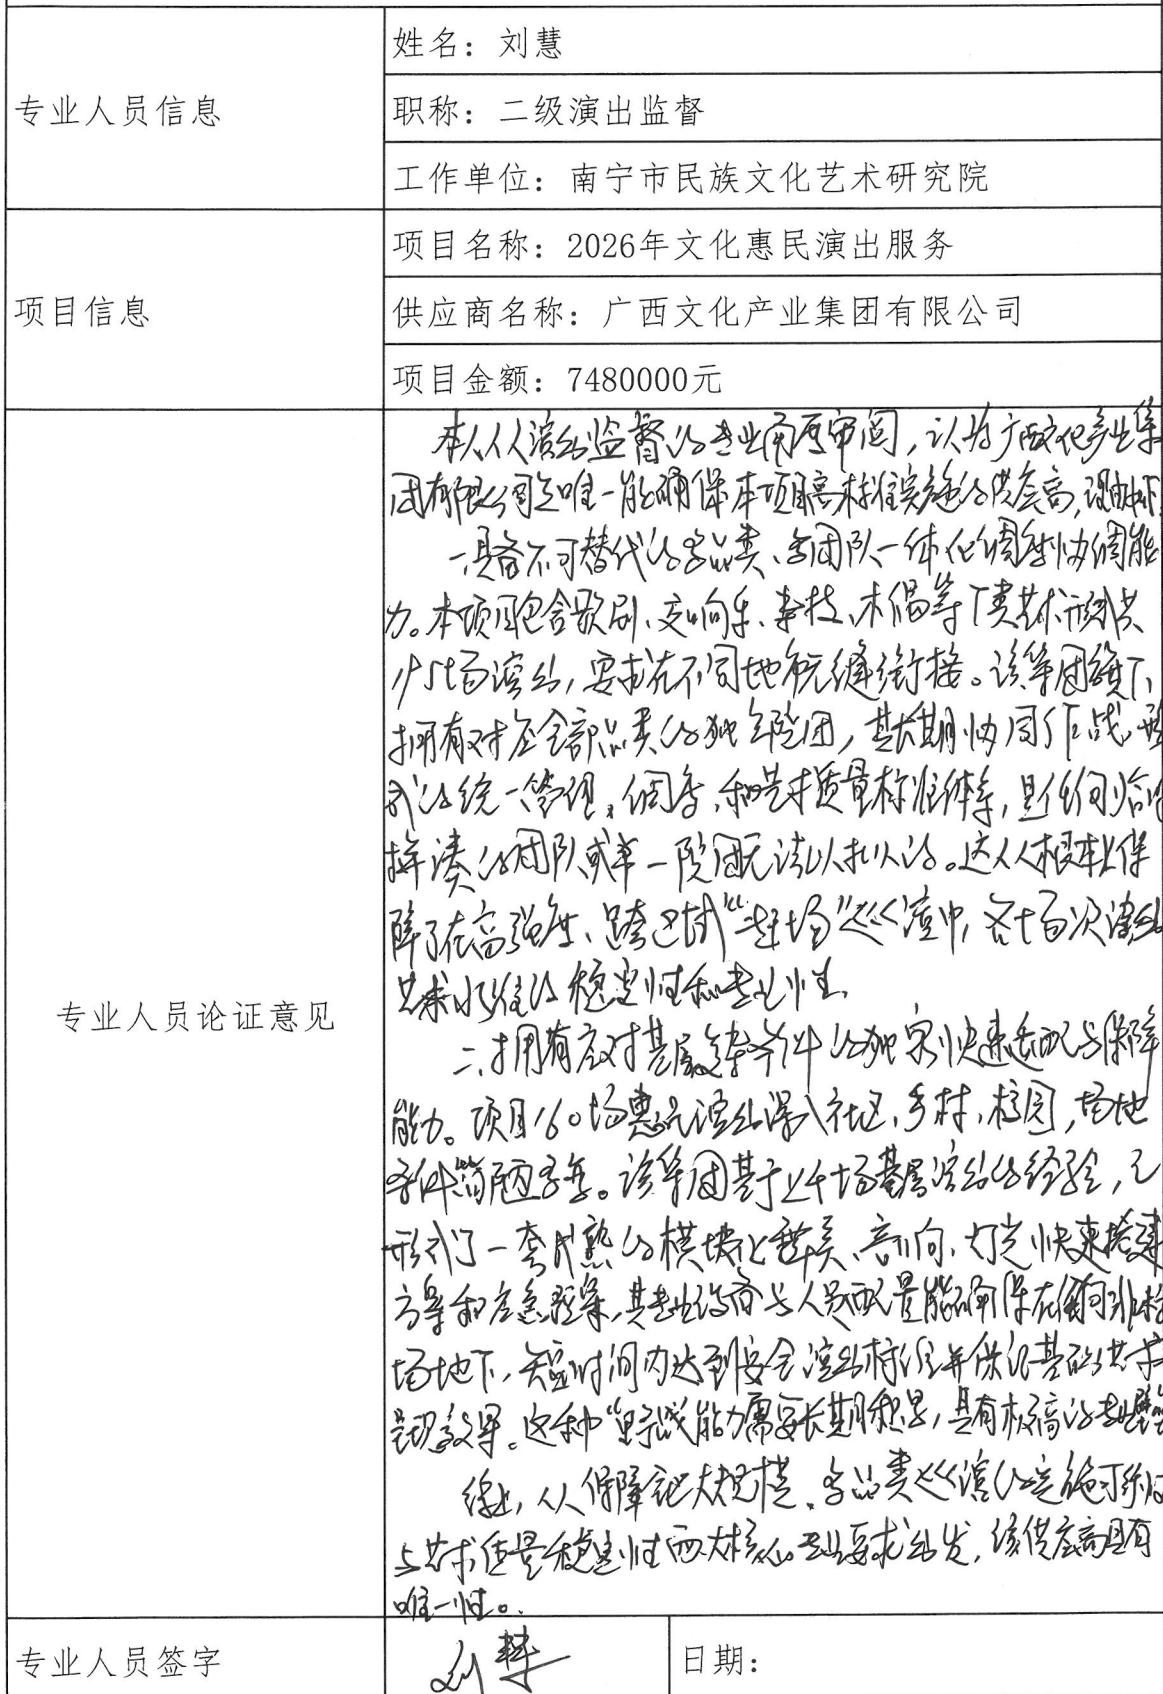 专业人员信息
姓名：刘慧
职称：二级演出监督
工作单位：南宁市民族文化艺术研究院
项目信息
项目名称：2026年文化惠民演出服务
供应商名称：广西文化产业集团有限公司
项目金额：7480000元
专业人员论证意见
本人从演出监督的专业角度审阅，认为广西文化产业集
团有限公司是唯一能确保本项目高标准实施的供应商，理由如下
一、具备不可替代的多品类、多团队一体化调度协调能
力。本项目包含歌剧、交响乐、杂技、木偶等 类艺术形式共
场演出，要求在不同地市无缝衔接。该集团旗下
拥有对应全部品类的独立院团，其长期协同作战、形
成的统一管理、调度和艺术质量标准体系，是任何临时
拼凑的团队或单一院团无法以 的。这从根本上保
障了在高强度、跨区域“赶场”巡演中，各十百次演出
艺术水准的稳定性和专业性。
二、拥有应对基层复杂条件的独家快速适配与保障
能力。项目160场惠民演出深入社区、乡村、校园，场地
条件简陋多变。该集团基于上千场基层演出的经验，已
形成了一套成熟的模块化舞美、音响、灯光快速搭建
方案和应急预案，其专业设备与人员配置能确保在任何非标
场地下，短时间内达到安全演出标准并保证基础的艺术
呈现效果。这种“野战”能力需要长期积累，具有极高的专业壁垒
综上，从保障 大规模、多品类巡演的实施可行性
与艺术质量稳定性两大核心专业要求出发，该供应商具有
唯一性。
专业人员签字
刘慧
日期：